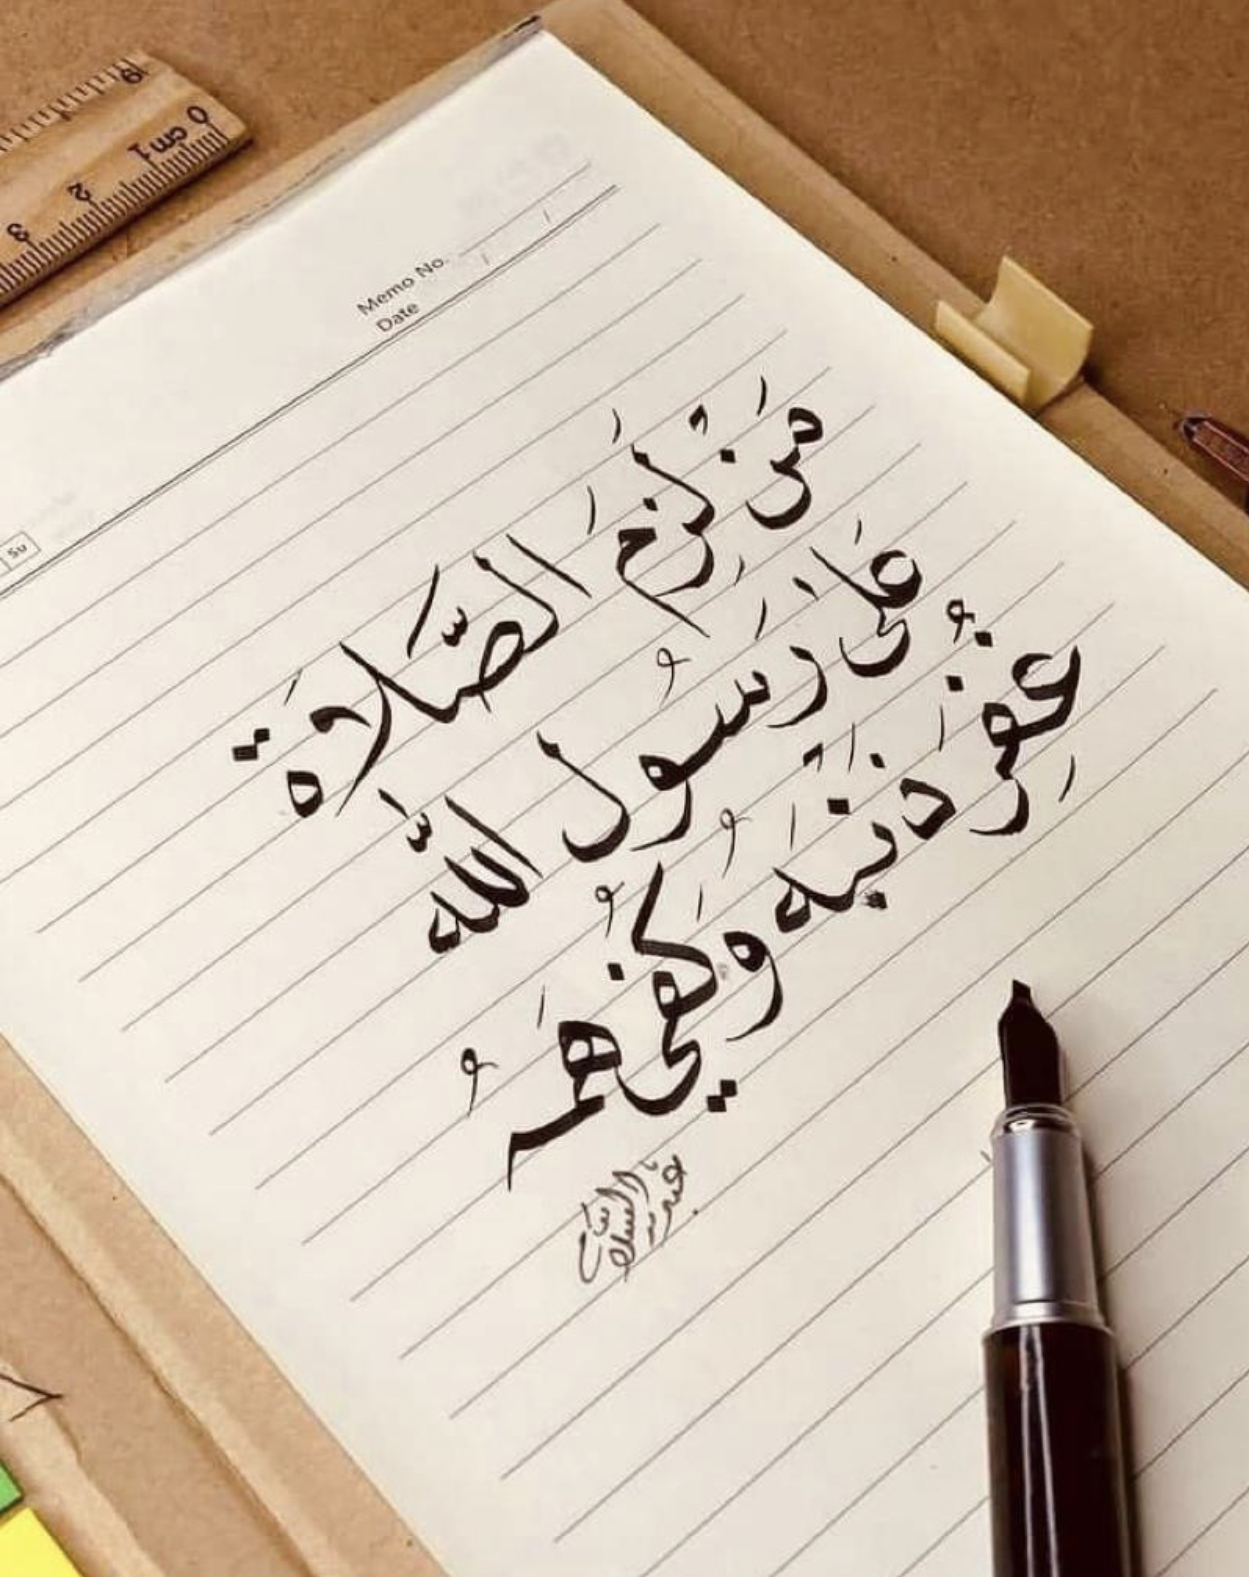 cm 0 1 2 3
Memo No.
Date / /
Su
مَنْ لَزِمَ الصَّلَاةَ
عَلَىٰ رَسُولِ اللَّه
غُفِرَ ذَنْبُه وَكُفِيَ هَمُّ